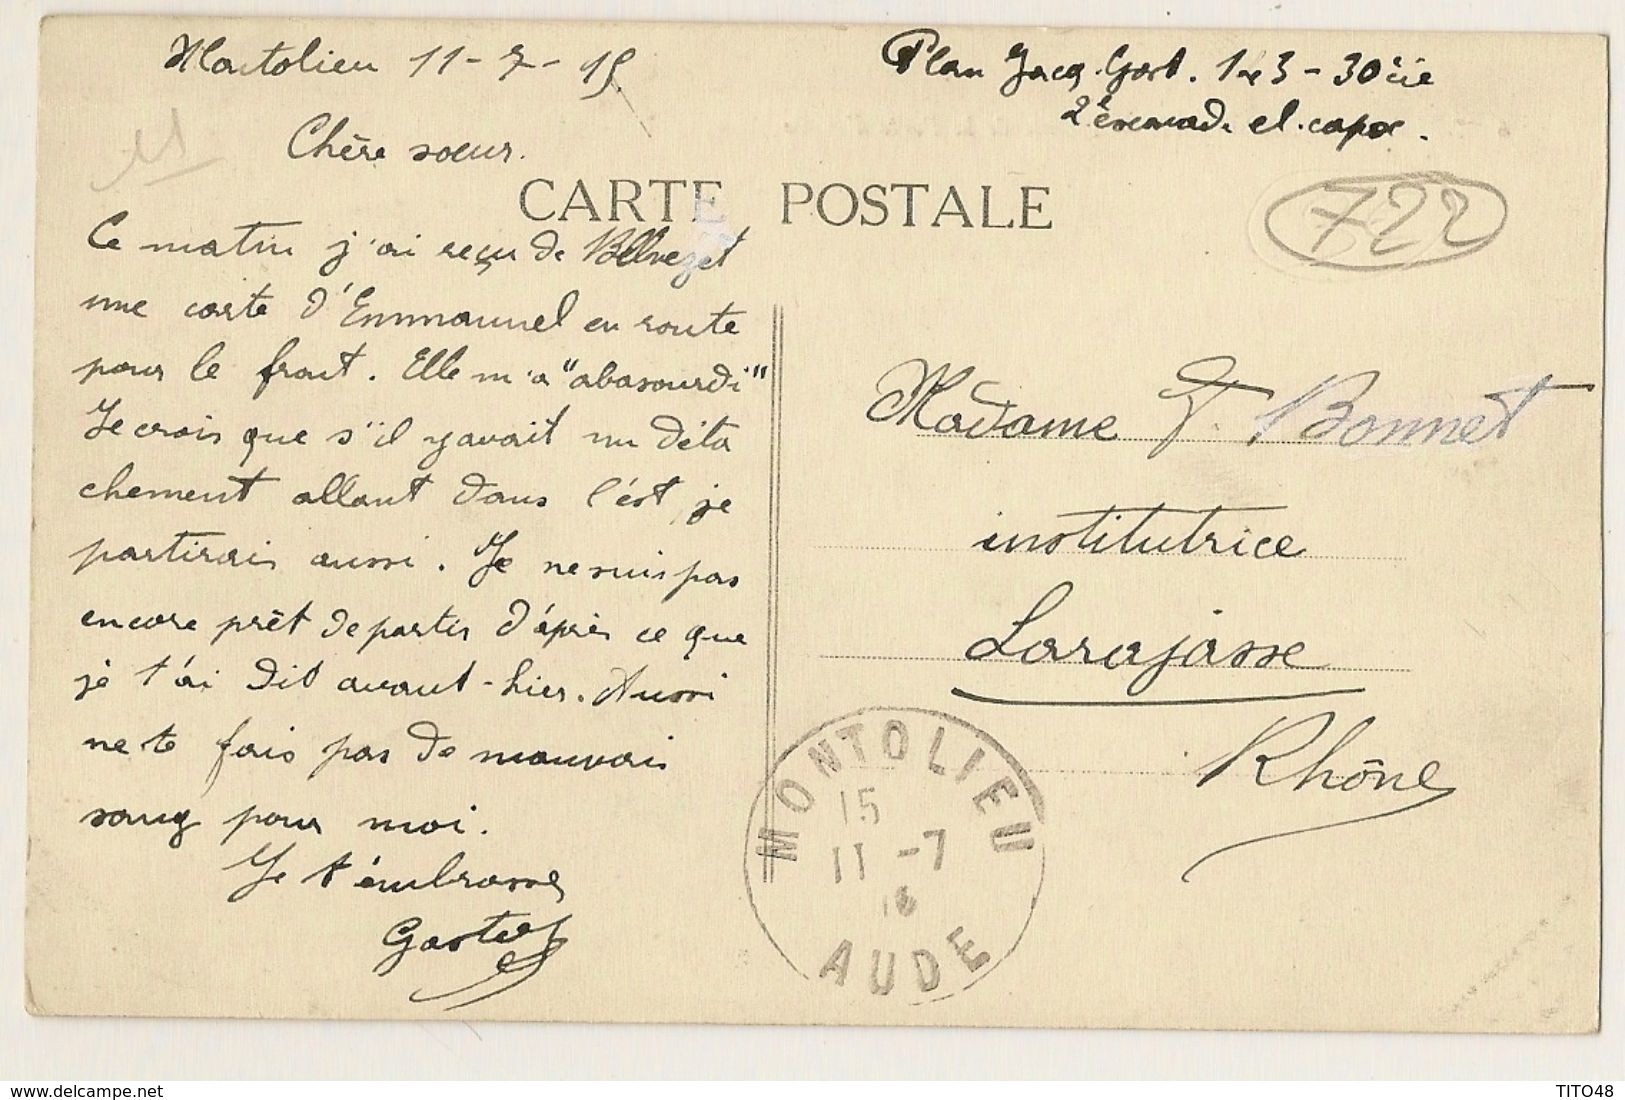 Montolieu 11-7-15.
Chère soeur.
Plan Jacq. Gast. 143-30e cie
2e escouade el. capor.
CARTE POSTALE
722
Ce matin j'ai reçu de Belvezet
une carte d'Emmanuel en route
pour le front. Elle m'a "abasourdi"
Je crois que s'il y avait un déta
chement allant dans l'est je
partirais aussi. Je ne suis pas
encore prêt de partir d'après ce que
je t'ai dit avant-hier. Aussi
ne te fais pas de mauvais
sang pour moi.
Je t'embrasse
Gaston
Madame F Bonnet
institutrice
Larajasse
Rhône
MONTOLIEU
15
11 -7
AUDE
https://www.delcampe.net
TITO48